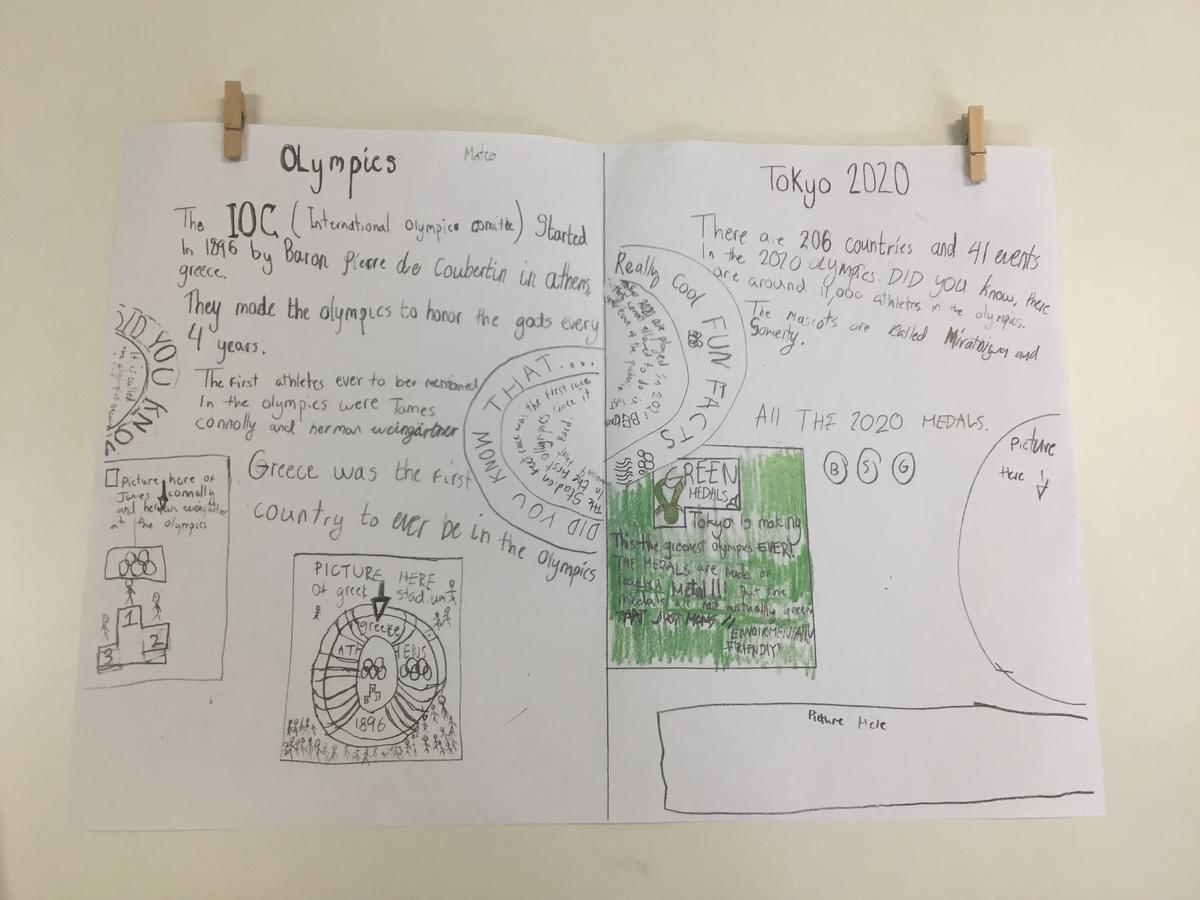 OLympics
Mateo
The IOC (International olympics comitte) Started
In 1896 by Baron pierre de Coubertin in athens,
greece.
They made the olympics to honor the gods every
4 years.
The first athletes ever to ber mentioned
In the olympics were James
connolly and herman weingärtner
Greece was the first
country to ever be in the olympics
DID YOU KNOW
It is called
the olympics
DID YOU KNOW THAT...
the first race
since it
Picture here of
James connolly
and herman weingartner
at the olympics
1
2
3
PICTURE HERE
of greet stadium
greece
ATHENS
1896
Tokyo 2020
There are 206 countries and 41 events
In the 2020 olympics. DID you know, there
are around 11,000 athletes in the olympics.
The mascots are called Miratoiwa and
Someity.
Really cool FUN FACTS
Tokyo 2020 are played in 2021
All THE 2020 MEDALS.
B S G
picture
Here
GREEN
MEDALS
Tokyo is making
This the greenest olympics EVER!
THE MEDALS are made of
Metal!!! But the
medals are not actually green
THAT JUST MEANS
FRIENDlY"
Picture Here